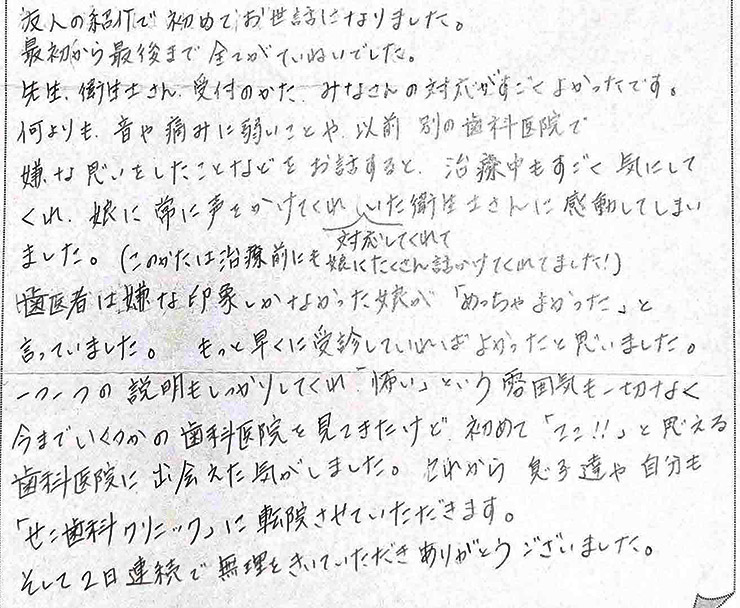 友人の紹介で初めてお世話になりました。
最初から最後まで全てがていねいでした。
先生、衛生士さん、受付のかた、みなさんの対応がすごくよかったです。
何よりも、音や痛みに弱いことや、以前 別の歯科医院で
嫌な思いをしたことなどをお話すると、治療中もすごく気にして
くれ、娘に常に声をかけてくれ、いた衛生士さんに感動してしまい
対応してくれて
ました。(このかたは治療前にも娘にたくさん話かけてくれてました!)
歯医者は嫌な印象しかなかった娘が「めっちゃよかった」と
言っていました。 もっと早くに受診していればよかったと思いました。
一つ一つの説明もしっかりしてくれ「怖い」という雰囲気も一切なく
今までいくつかの歯科医院を見てきたけど、初めて「ここ!!」と思える
歯科医院に出会えた気がしました。これから息子達や自分も
「せこ歯科クリニック」に転院させていただきます。
そして2日連続で無理をきいていただきありがとうございました。